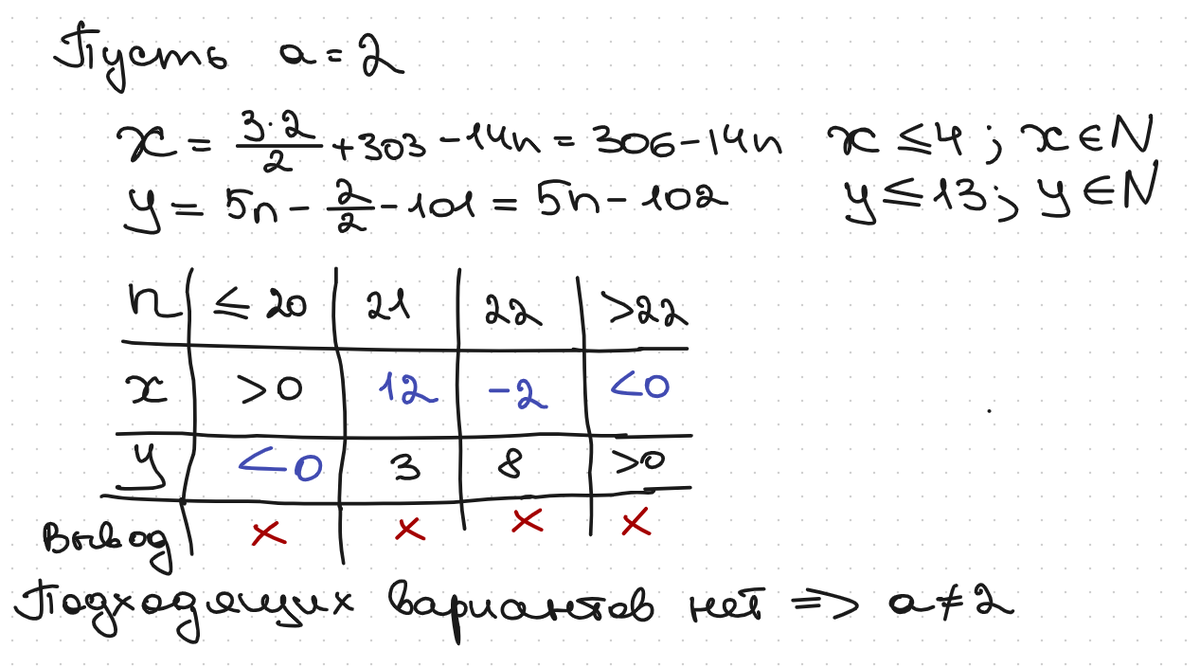 Пусть a = 2
x = 3·2/2 + 303 - 14n = 306 - 14n x ≤ 4 ; x ∈ N
y = 5n - 2/2 - 101 = 5n - 102 y ≤ 13 ; y ∈ N
n ≤ 20 21 22 >22
x >0 12 -2 <0
y <0 3 8 >0
Вывод × × × ×
Подходящих вариантов нет => a ≠ 2